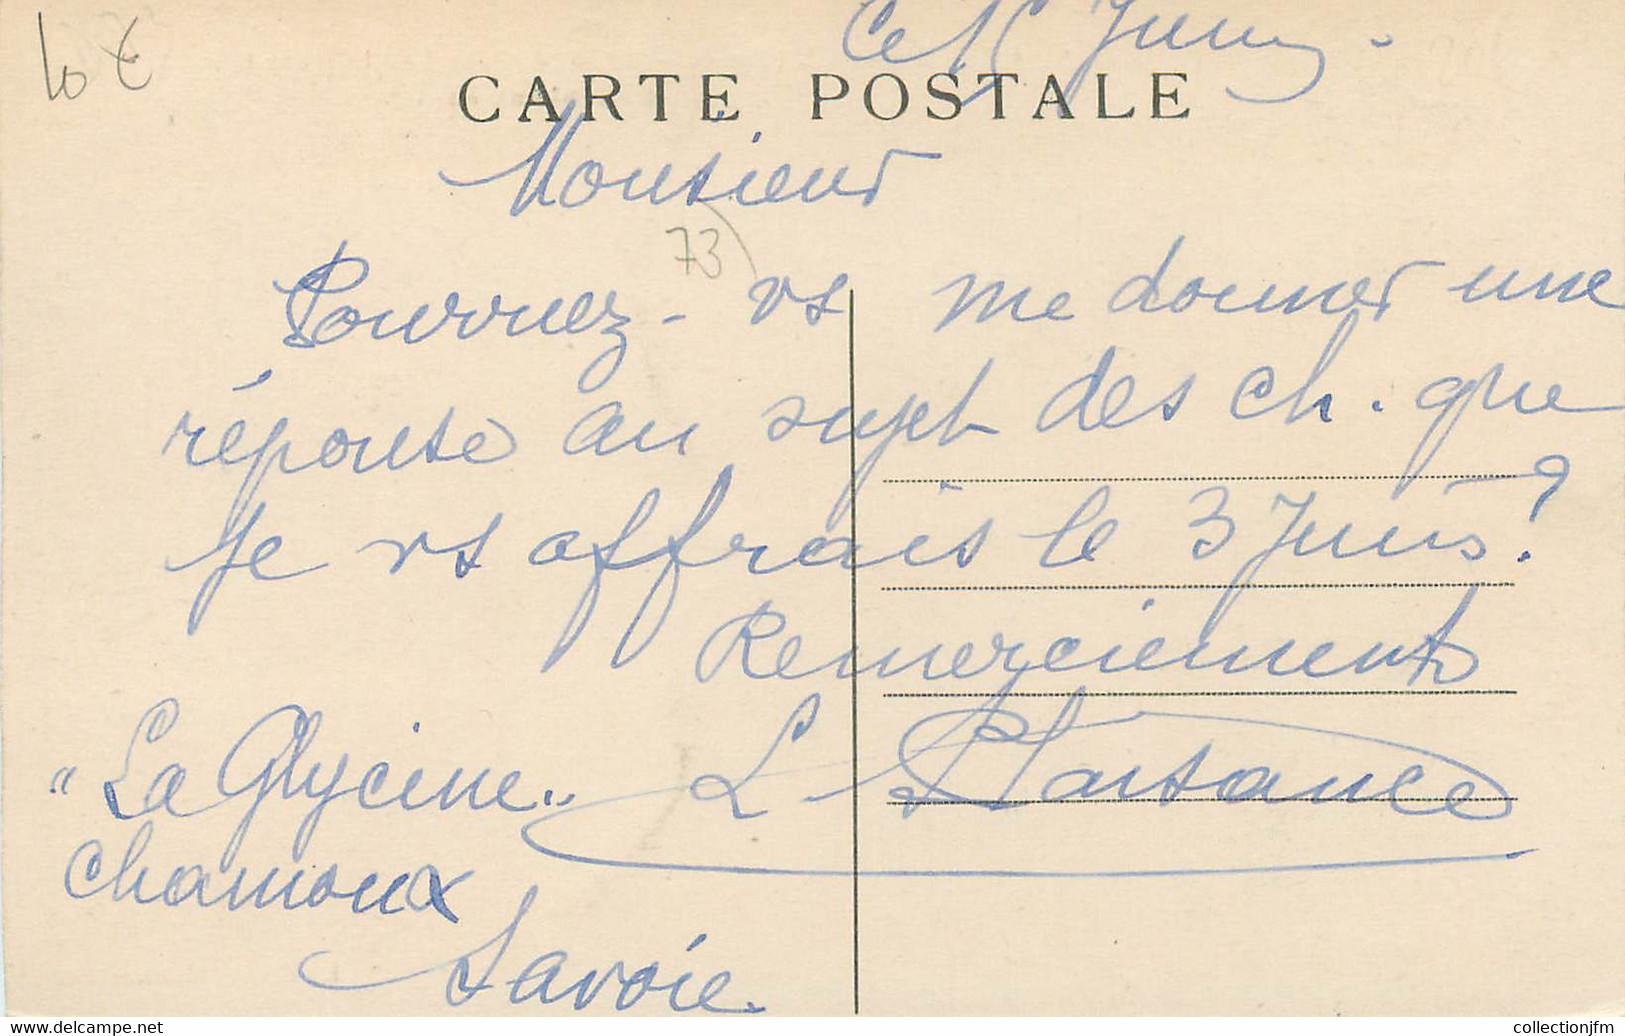 10 €
Ce Juin.
CARTE POSTALE
Monsieur
73
Pourriez-vs me donner une
réponse au sujet des ch. que
je vs offrais le 3 Juin?
Remerciements
"La Glycine" L
Chamoux
Savoie.
www.delcampe.net
collectionjfm